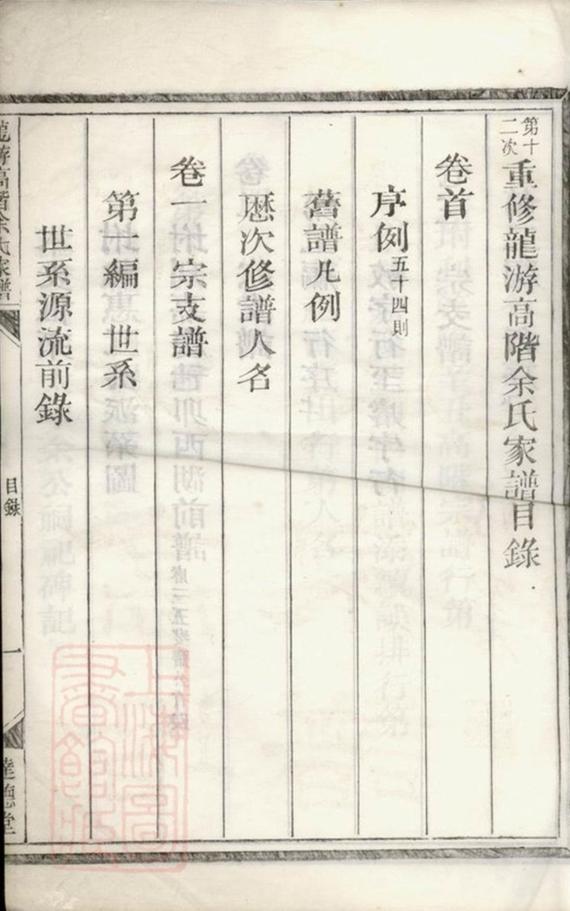 第十二次重修龍游高階余氏家譜目錄
卷首
序例五十四則
舊譜凡例
歷次修譜人名
卷一 宗支譜
第一編世系
世系源流前錄
龍游高階余氏家譜
目錄
一
達德堂
上海圖書館藏